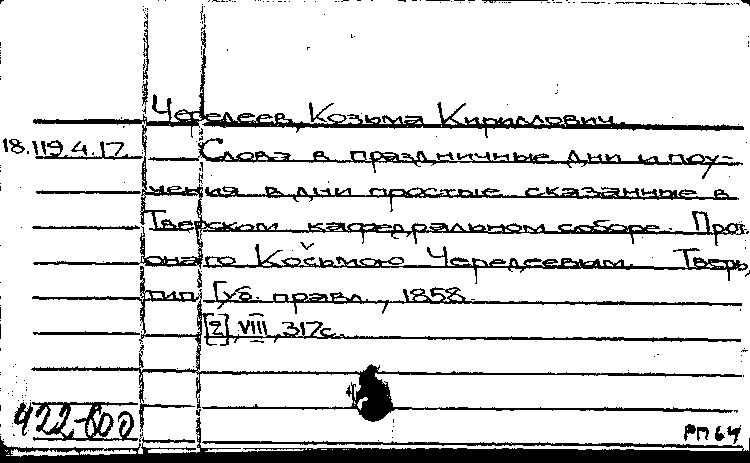 Чередеев, Козьма Кириллович.
18.119.4.17. Слова в праздничные дни и поу-
чения в дни простые сказанные в
Тверском кафедральном соборе. Прот.
онаго Косьмою Чередеевым. Тверь,
тип. Губ. правл., 1858.
[2], VIII, 317с.
422-600
РП 64